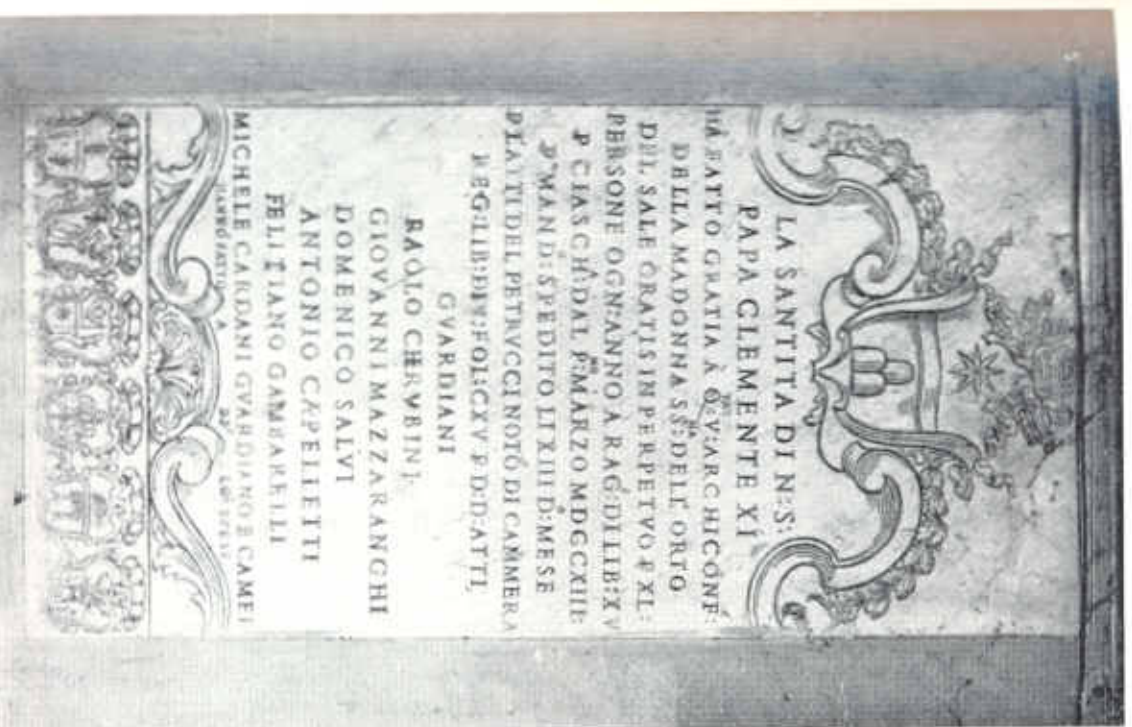 LA SANTITA DI N:S:
PAPA CLEMENTE XI
HÀ FATTO GRATIA À Q:V:ARCHICONF:
DELLA MADONNA SS: DELL' ORTO
DEL SALE GRATIS IN PERPETVO P XL:
PERSONE OGN:ANNO À RAG: DI LIB: XV
P CIASCH: DAL P:MARZO MDGCXIII:
P MAND: SPEDITO LI XIII D: MESE
P LATTI DEL PETRVCCI NOTO DI CAMMERA
REG: LIB: FOL: CXV P D: D: ATTI,
GVARDIANI
PAOLO CHERVBINI.
GIOVANNI MAZZARANGHI
DOMENICO SALVI
ANTONIO CAPELLETTI
FELITIANO GAMBARELLI
MICHELE CARDANI GVARDIANO E CAMEI